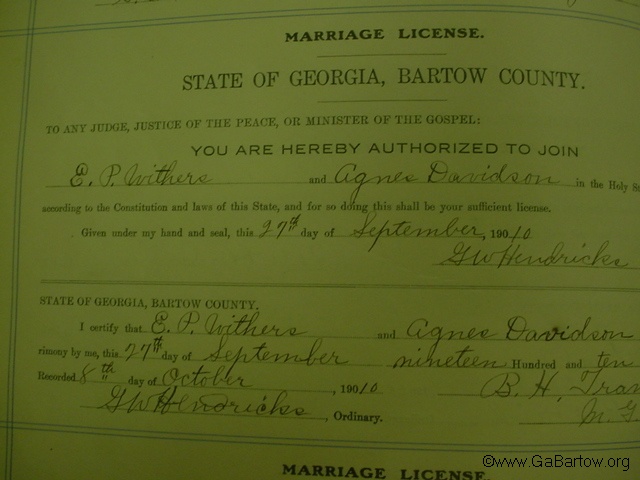 MARRIAGE LICENSE.
STATE OF GEORGIA, BARTOW COUNTY.
TO ANY JUDGE, JUSTICE OF THE PEACE, OR MINISTER OF THE GOSPEL:
YOU ARE HEREBY AUTHORIZED TO JOIN
E. P. Withers and Agnes Davidson in the Holy
according to the Constitution and laws of this State, and for so doing this shall be your sufficient license.
Given under my hand and seal, this 27th day of September, 190 10
G W Hendricks
STATE OF GEORGIA, BARTOW COUNTY.
I certify that E. P. Withers and Agnes Davidson
rimony by me, this 27th day of September nineteen Hundred and ten
Recorded 8th day of October, 190 10 B. H.
G W Hendricks, Ordinary. M. G.
MARRIAGE LICENSE.
©www.GaBartow.org